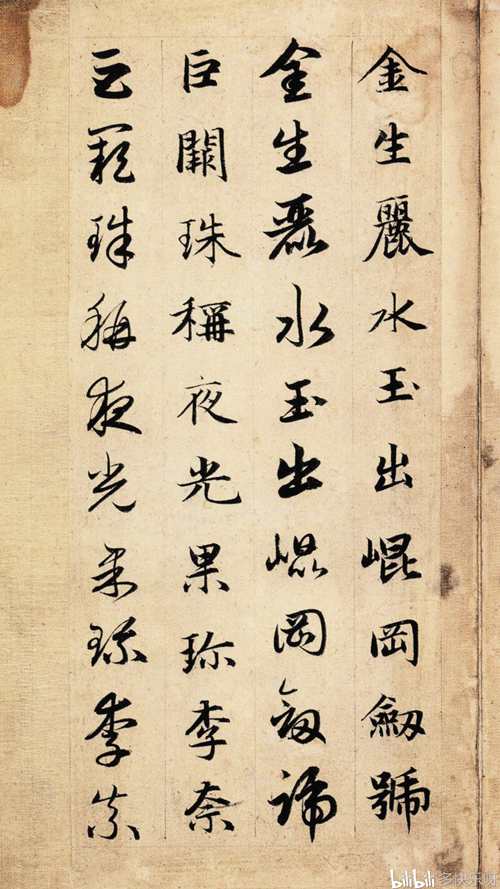 金生麗水玉出崐岡劒號
金生麗水玉出崐岡劒號
巨闕珠稱夜光果珎李柰
巨闕珠稱夜光果珎李柰
bilibili 多快乐呀